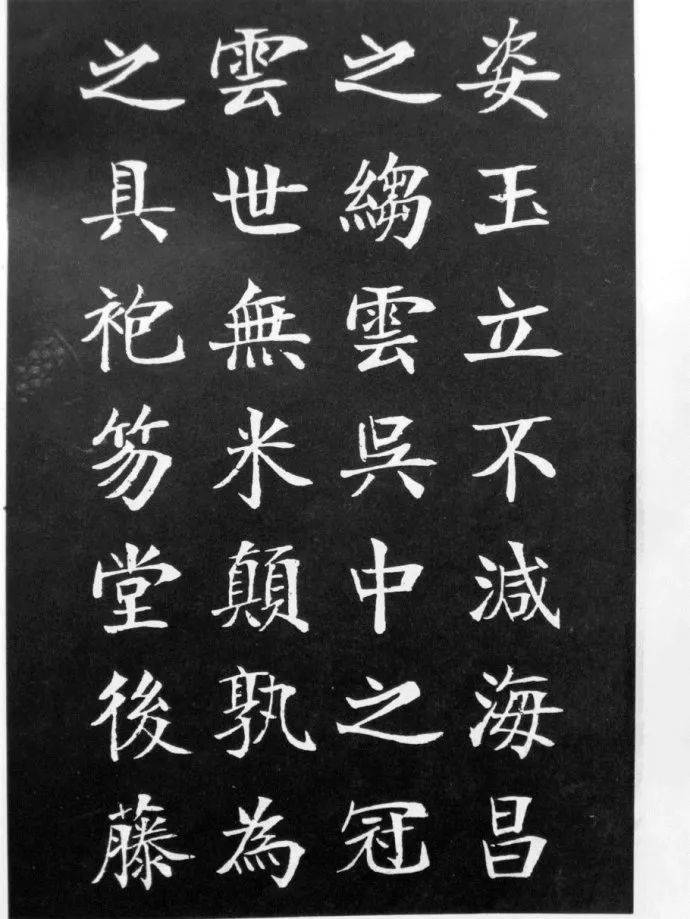 姿玉立不減海昌
之縐雲吳中之冠
雲世無米顛孰為
之具袍笏堂後藤